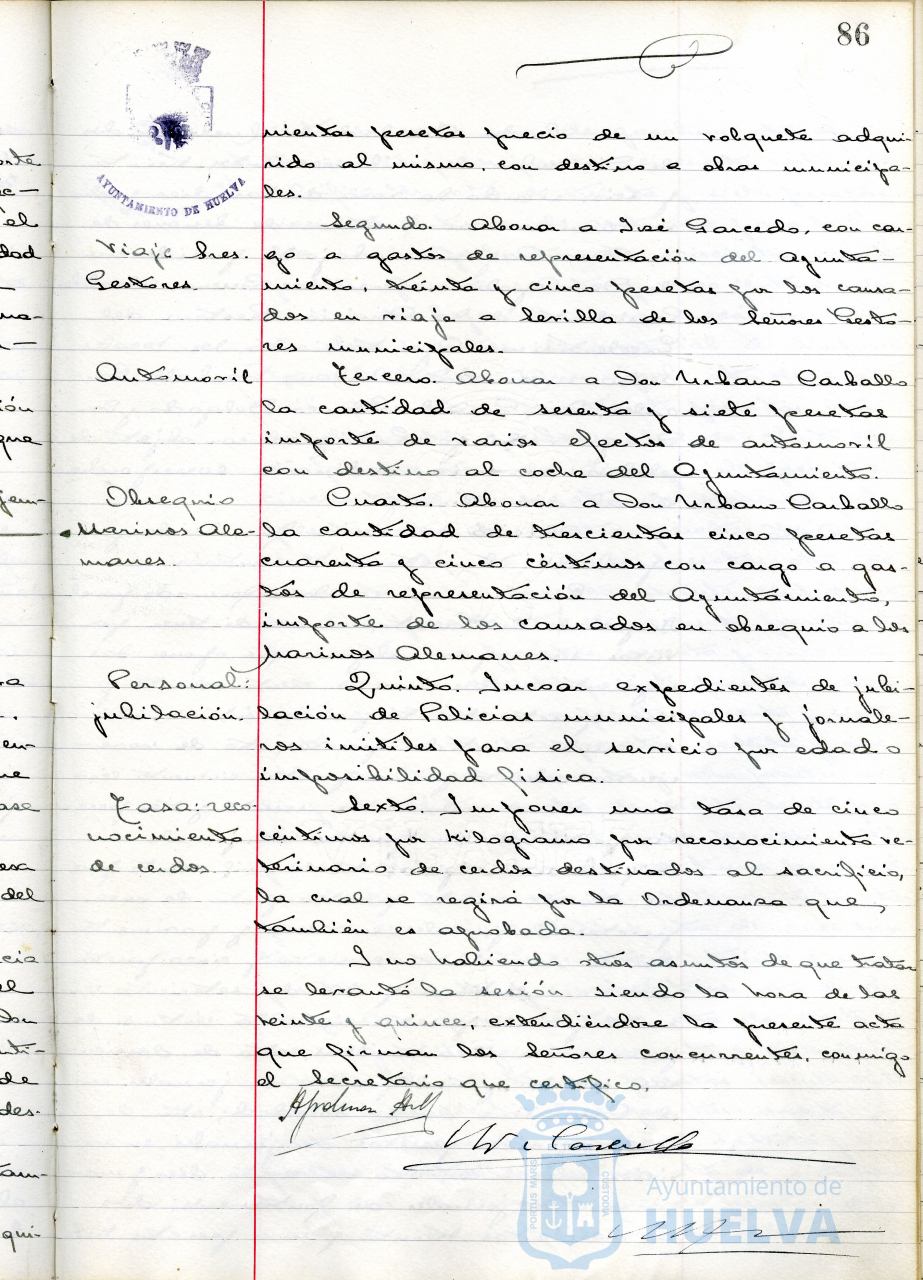 86
AYUNTAMIENTO DE HUELVA
nientas pesetas precio de un volquete adqui-
rido al mismo, con destino a obras municipa-
les.
Viaje Sres.
Gestores.
Segundo. Abonar a José Garcedo, con car-
go a gastos de representación del Ayunta-
miento, treinta y cinco pesetas por los causa-
dos en viaje a Sevilla de los Señores Gesto-
res municipales.
Automovil
Tercero. Abonar a Don Urbano Carballo
la cantidad de sesenta y siete pesetas
importe de varios efectos de automovil
con destino al coche del Ayuntamiento.
Obsequio
Marinos Ale-
manes.
Cuarto. Abonar a Don Urbano Carballo
la cantidad de trescientas cinco pesetas
cuarenta y cinco céntimos con cargo a gas-
tos de representación del Ayuntamiento,
importe de los causados en obsequio a los
Marinos Alemanes.
Personal:
jubilación.
Quinto. Incoar expedientes de jubi-
lación de Policias municipales y jornale-
ros inútiles para el servicio por edad o
imposibilidad física.
Tasa: reco-
nocimiento
de cerdos.
Sexto. Imponer una tasa de cinco
céntimos por kilogramo por reconocimiento ve-
terinario de cerdos destinados al sacrificio,
la cual se regirá por la Ordenanza que
también es aprobada.
I no habiendo otros asuntos de que tratar
se levantó la sesión siendo la hora de las
veinte y quince, extendiéndose la presente acta
que firman los Señores concurrentes, conmigo
el Secretario que certifico.
PORTUS MARIS
CUSTODIA
Ayuntamiento de
HUELVA